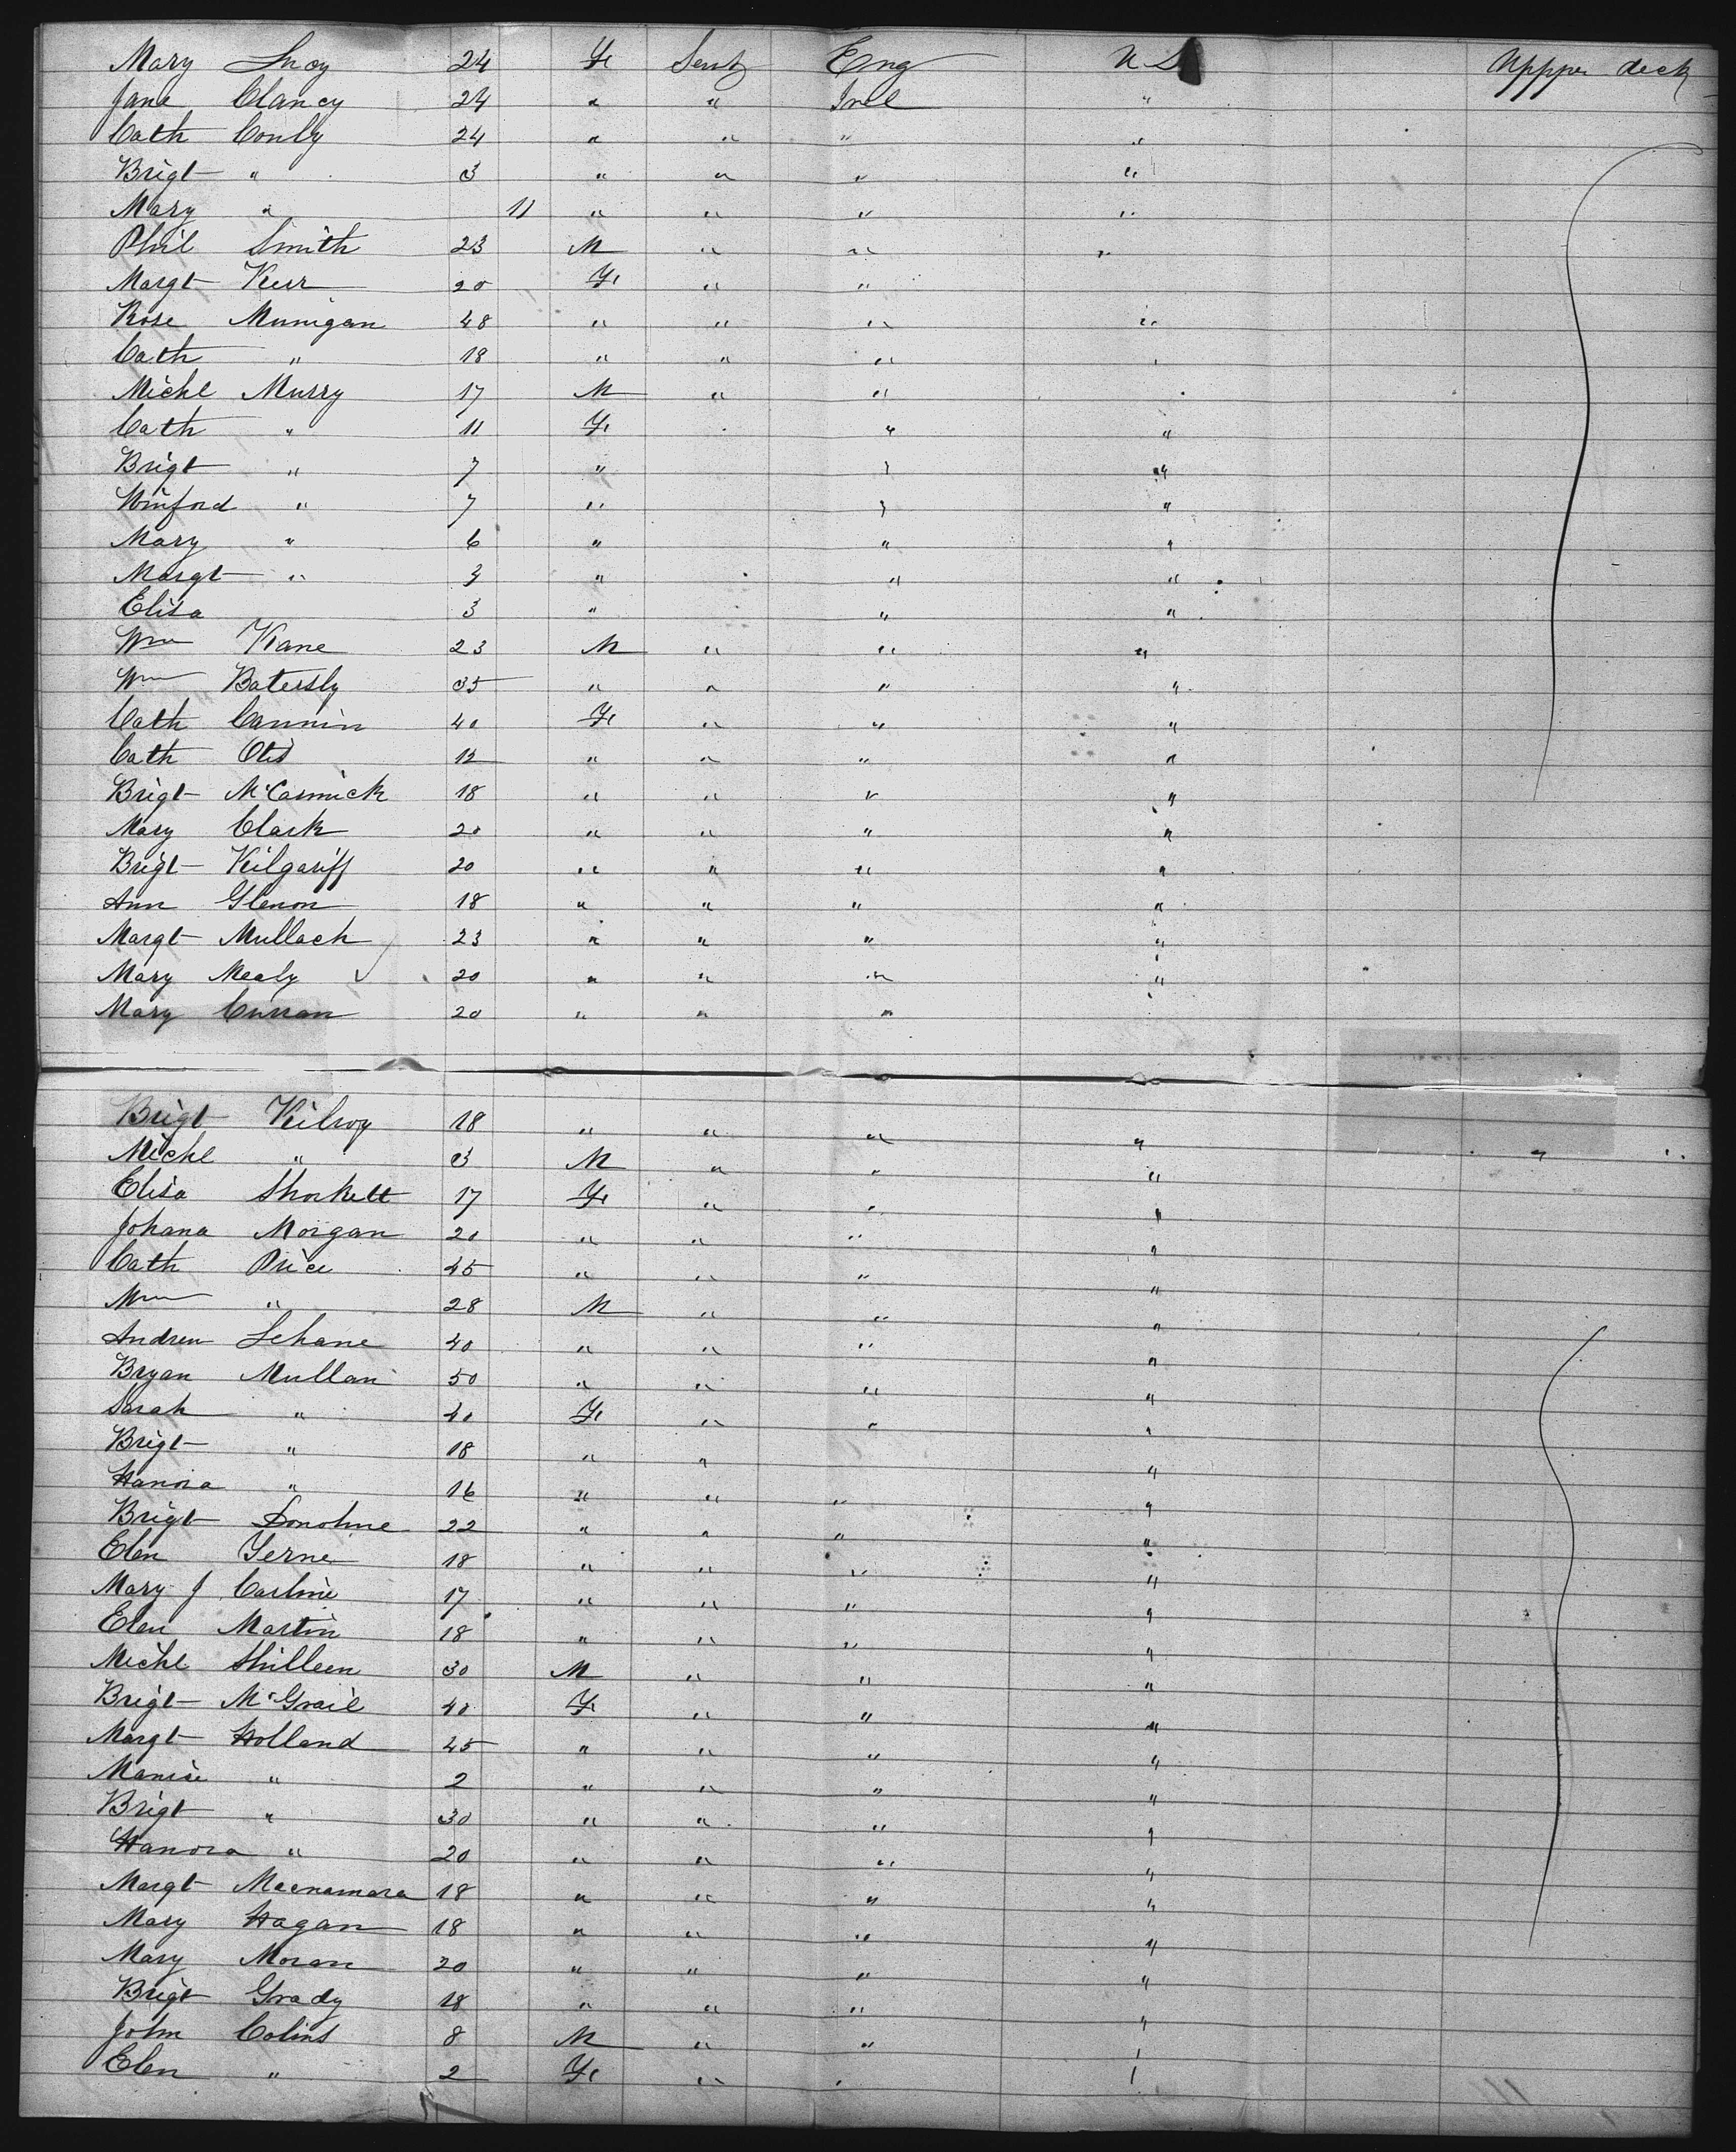 Mary Lucy 24 Fe Servt Eng U S Uppper deck
Jane Clancy 24 " " Irel "
Cath Conly 24 " " " "
Brigt " 3 " " " "
Mary " 11 " " " "
Phil Smith 23 M " " "
Margt Kerr 20 Fe " "
Rose Munigan 48 " " " "
Cath " 18 " " " "
Michl Murry 17 M " " "
Cath " 11 Fe " "
Brigt " 7 " " "
Winford " 7 " " "
Mary " 6 " " "
Margt " 3 " " "
Elisa 3 " " "
Wm Kane 23 M " " "
Wm Batersly 35 " " " "
Cath Cannin 40 Fe " " "
Cath Otis 12 " " " "
Brigt McCormick 18 " " " "
Mary Clark 20 " " " "
Brigt Kilgariff 20 " " " "
Ann Glenon 18 " " " "
Margt Mullach 23 " " " "
Mary Mealy 20 " " " "
Mary Curran 20 " " "
Brigt Kilroy 18 " " " "
Michl " 3 M " " " " "
Elisa Shorkett 17 Fe " " "
Johana Morgan 20 " " " "
Cath Price 45 " " " "
Wm " 28 M " " "
Andrew Lehane 40 " " " "
Bryan Mullan 50 " " " "
Sarah " 40 Fe " " "
Brigt " 18 " " "
Hanora " 16 " " " "
Brigt Donohue 22 " " " "
Elen Ferne 18 " " " "
Mary J Carline 17 " " " "
Elen Martin 18 " " " "
Michl Skilleen 30 M " " "
Brigt McGrail 40 Fe " " "
Margt Holland 45 " " " "
" 2 " " " "
Brigt " 30 " " " "
Hanora " 20 " " " "
Margt Macnamara 18 " " " "
Mary Hagan 18 " " " "
Mary Moran 20 " " " "
Brigt Grady 18 " " " "
John Colins 8 M " " "
Elen " 2 Fe " " "